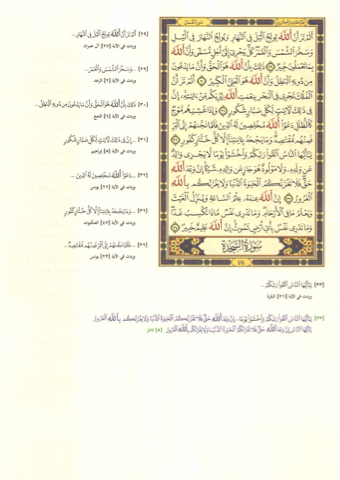 سورة لقمان
ألم تر أن الله يولج اليل في النهار ويولج النهار في اليل
وسخر الشمس والقمر كل يجري إلى أجل مسمى وأن الله
بما تعملون خبير (٢٩) ذلك بأن الله هو الحق وأن ما يدعون
من دونه الباطل وأن الله هو العلي الكبير (٣٠) ألم تر أن
الفلك تجري في البحر بنعمت الله ليريكم من ءايته إن
في ذلك لأيت لكل صبار شكور (٣١) وإذا غشيهم موج
كالظلل دعوا الله مخلصين له الدين فلما نجىهم إلى البر
فمنهم مقتصد وما يجحد بايتنا إلا كل ختار كفور (٣٢)
يأيها الناس اتقوا ربكم واخشوا يوما لا يجزي والد
عن ولده ولا مولود هو جاز عن والده شيئا إن وعد الله
حق فلا تغرنكم الحيوة الدنيا ولا يغرنكم بالله
الغرور (٣٣) إن الله عنده علم الساعة وينزل الغيث
ويعلم ما في الأرحام وما تدري نفس ماذا تكسب غدا
وما تدري نفس بأي أرض تموت إن الله عليم خبير (٣٤)
سورة السجدة
٤١٤
[٢٩] ألم تر أن الله يولج اليل في النهار...
وردت في الآية [٢٧] آل عمران
[٢٩] ...وسخر الشمس والقمر...
وردت في الآية [٢] الرعد
[٣٠] ذلك بأن الله هو الحق وأن ما يدعون من دونه الباطل...
[٣١] ...إن في ذلك لأيت لكل صبار شكور
وردت في الآية [٥] إبراهيم
[٣٢] ...دعوا الله مخلصين له الدين...
وردت في الآية [٢٢] يونس
[٣٢] ...وما يجحد بايتنا إلا كل ختار كفور
[٣٢] ...فلما نجىهم إلى البر فمنهم مقتصد...
وردت في الآية [٢٣] يونس
[٣٣] يأيها الناس اتقوا ربكم...
وردت في الآية [٢١] البقرة
[٣٣] يأيها الناس اتقوا ربكم واخشوا يوما... إن وعد الله حق فلا تغرنكم الحيوة الدنيا ولا يغرنكم بالله الغرور
يأيها الناس إن وعد الله حق فلا تغرنكم الحيوة الدنيا ولا يغرنكم بالله الغرور [٥] فاطر